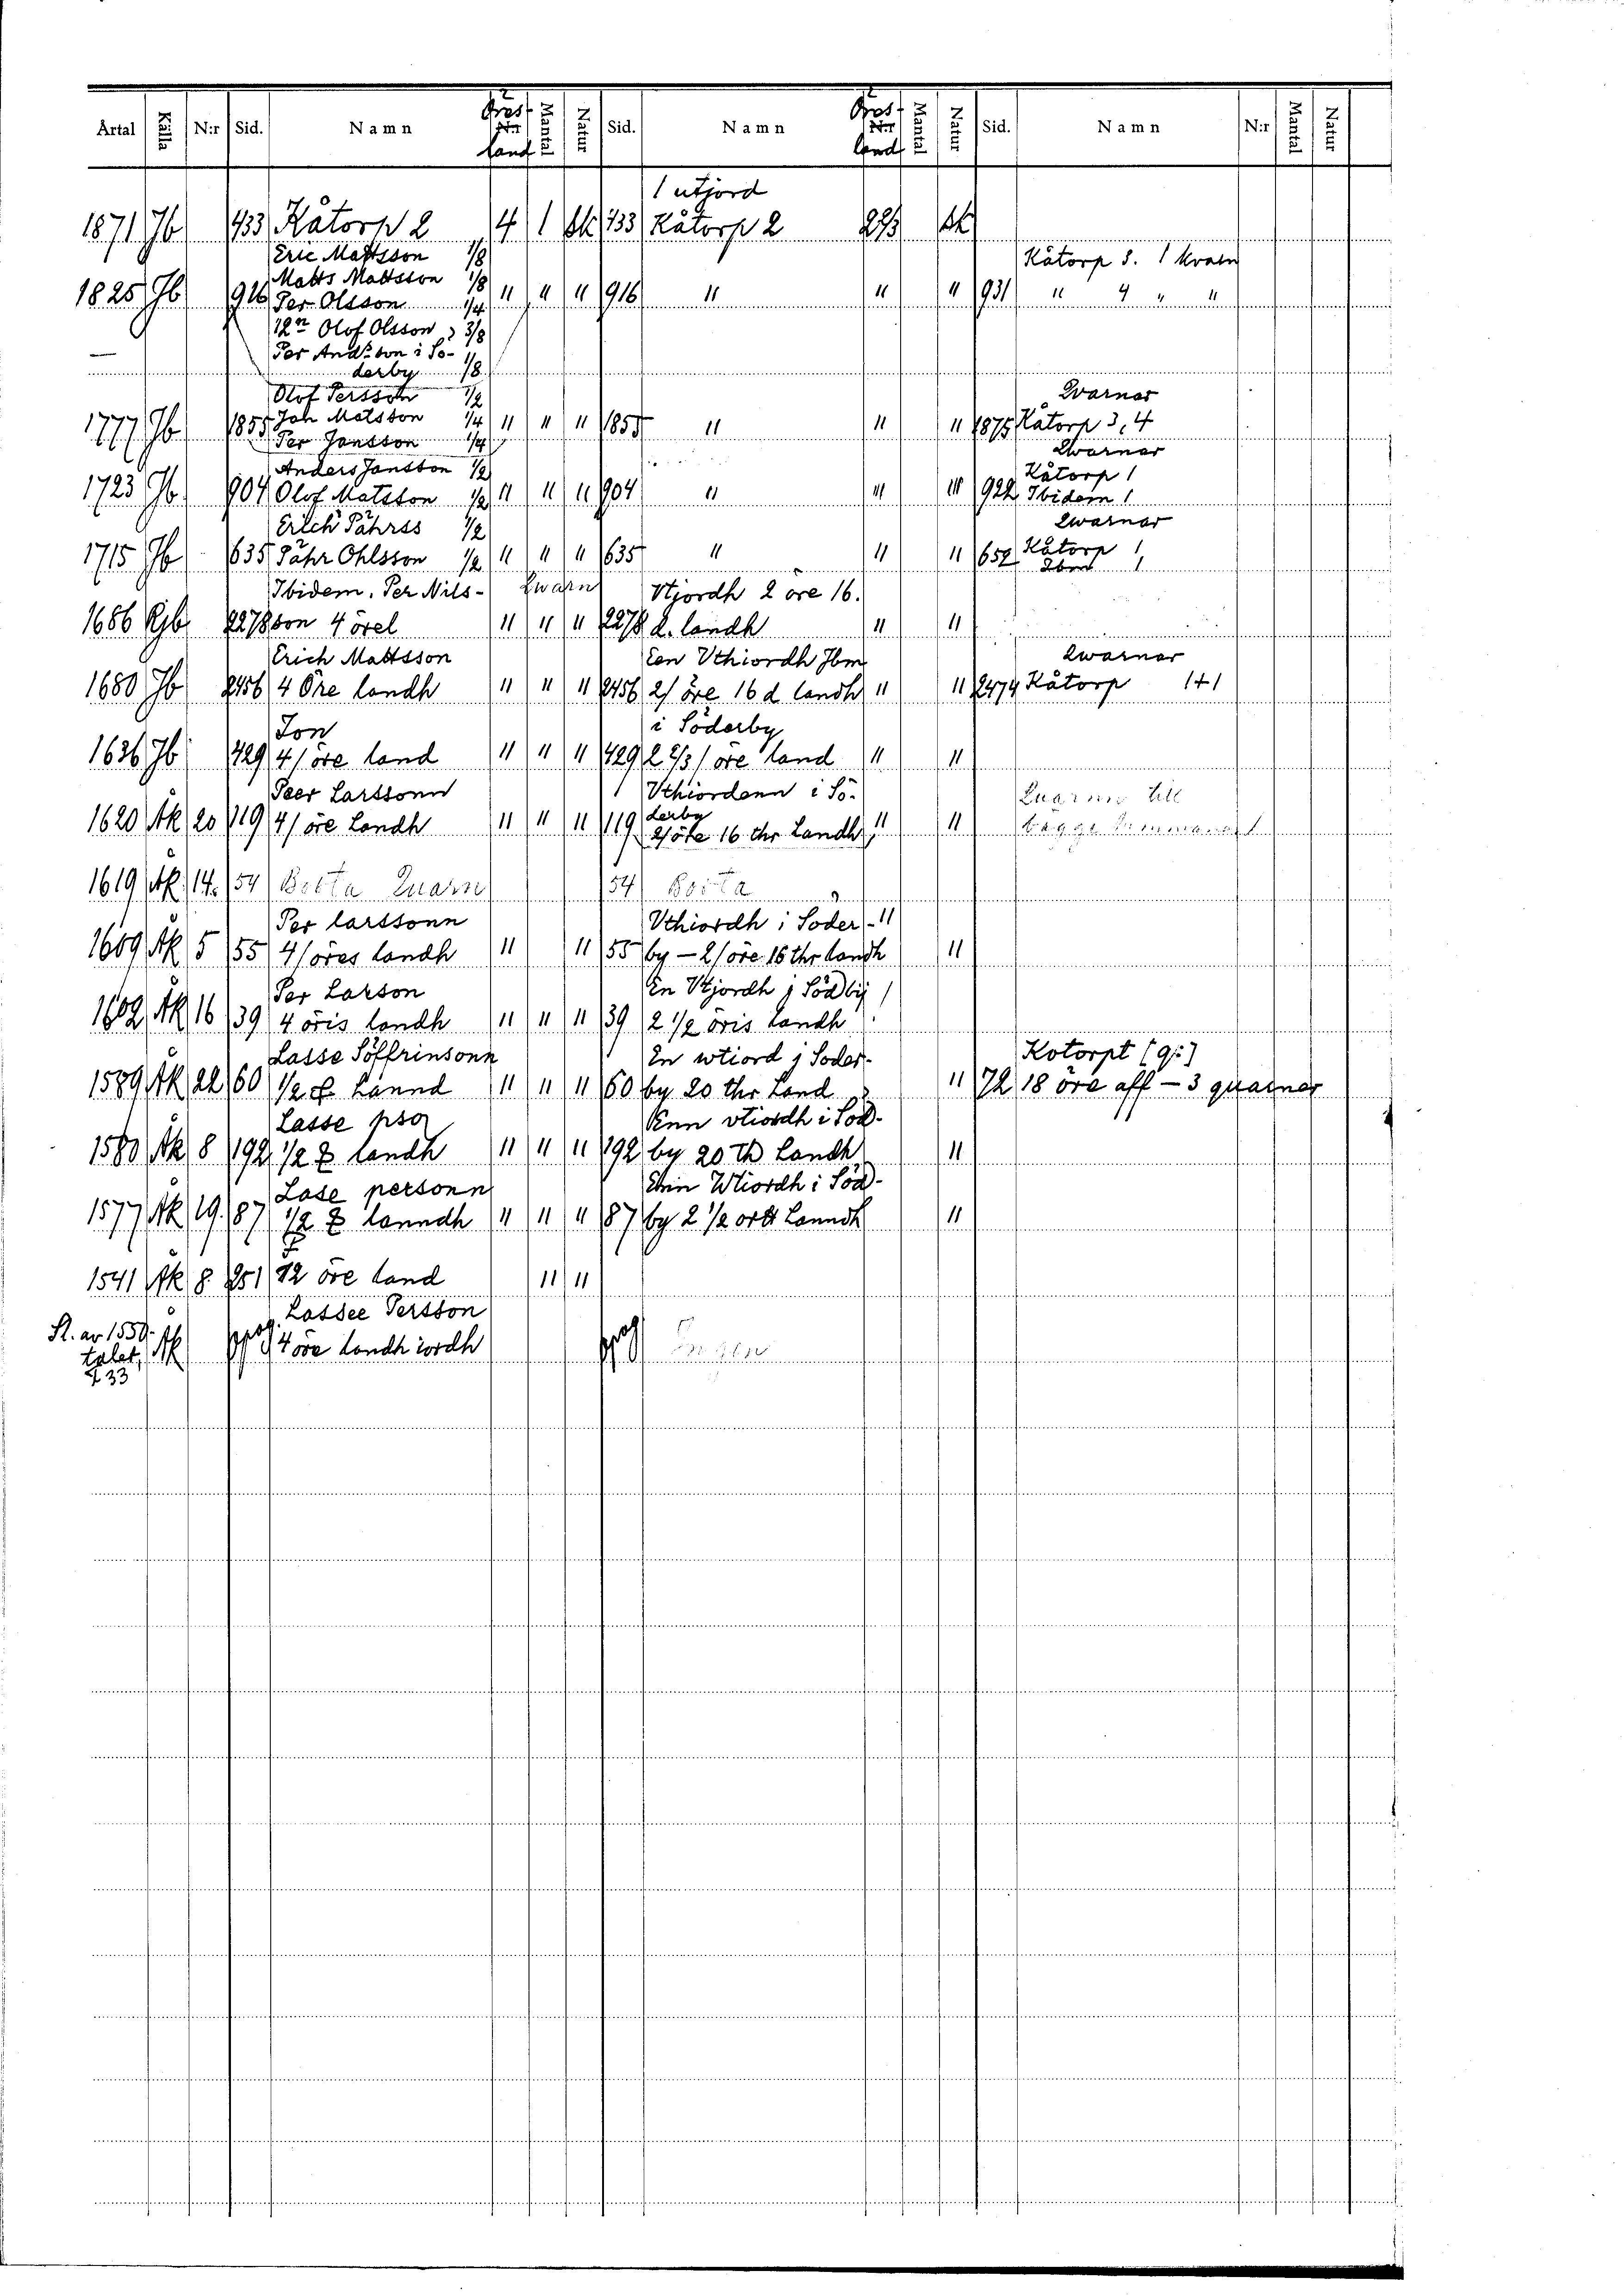 Årtal Källa N:r Sid. Namn Öres land Mantal Natur Sid. Namn Öres land Mantal Natur Sid. Namn N:r Mantal Natur
1 utjord
1871 Jb 433 Kåtorp 2 4 1 Sk 433 Kåtorp 2 2 2/3 Sk
Eric Mattsson 1/8 Kåtorp 3. 1 kvarn
Matts Mattsson 1/8
1825 Jb 916 Per Olsson 1/4 " " " 916 " " " 931 " 4 " "
Olof Olsson 3/8
Per And:son i Sö-
derby 1/8
Olof Persson 1/2 Qvarnar
1777 Jb 1855 Joh Matsson 1/4 " " " 1855 " " " 1875 Kåtorp 3, 4
Per Jansson 1/4
Anders Jansson 1/2 Qwarnar
Kåtorp 1
1723 Jb 904 Olof Matsson 1/2 " " " 904 " " " 922 Ibidem 1
Erich Pährss 1/2 Qwarnar
1715 Jb 635 Pähr Ohlsson 1/2 " " " 635 " " " 652 Kåtorp 1
Ibm 1
Ibidem. Per Nils- Qwarn Vtjordh 2 öre 16.
1686 Rjb 2278 son 4 örel " " " 2278 d. landh " "
Erich Mattsson Een Vthiordh Ibm Qwarnar
1680 Jb 2456 4 Öre landh " " " 2456 2/ öre 16 d landh " " 2474 Kåtorp 1+1
Jon i Söderby
1636 Jb 429 4/ öre land " " " 429 2 2/3/ öre land " "
Peer Larssonn Vthiordenn i Sö-
1620 Äk 20 119 4/ öre Landh " " " 119 derby 2/öre 16 thr Landh " " Quarnn till
1619 Äk 14 54 Botta Quarn 54 Botta
Per larssonn Vthiordh i Söder- "
1609 Äk 5 55 4/öres landh " " 55 by — 2/öre 16 thr landh "
Per Larson En Vtjordh j Södbij
1602 Äk 16 39 4 öris landh " " " 39 2 1/2 öris landh
Lasse Söffrinsonn En wtiord j Söder- Kotorpt [9:]
1589 Äk 22 60 1/2 Lannd " " " 60 by 20 thr Land " 72 18 öre aff — 3 quarner
Lasse pson Enn vtiordh i Söd-
1580 Äk 8 192 1/2 landh " " " 192 by 20 th Landh "
Lase personn Ehn Wtiordh i Söd-
1577 Äk 19 87 1/2 lanndh " " " 87 by 2 1/2 Lanndh "
1541 Äk 8 251 12 öre land " "
Lassee Persson
Sl. av 1550-
talet, Äk 4 öre landh iordh
33